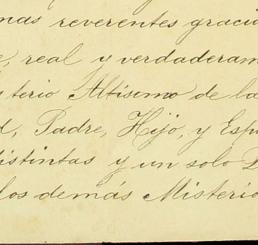 mas reverentes gracia
, real y verdaderam
terio Altisimo de la
d, Padre, Hijo, y Esp
distintas y un solo D
los demás Misterio